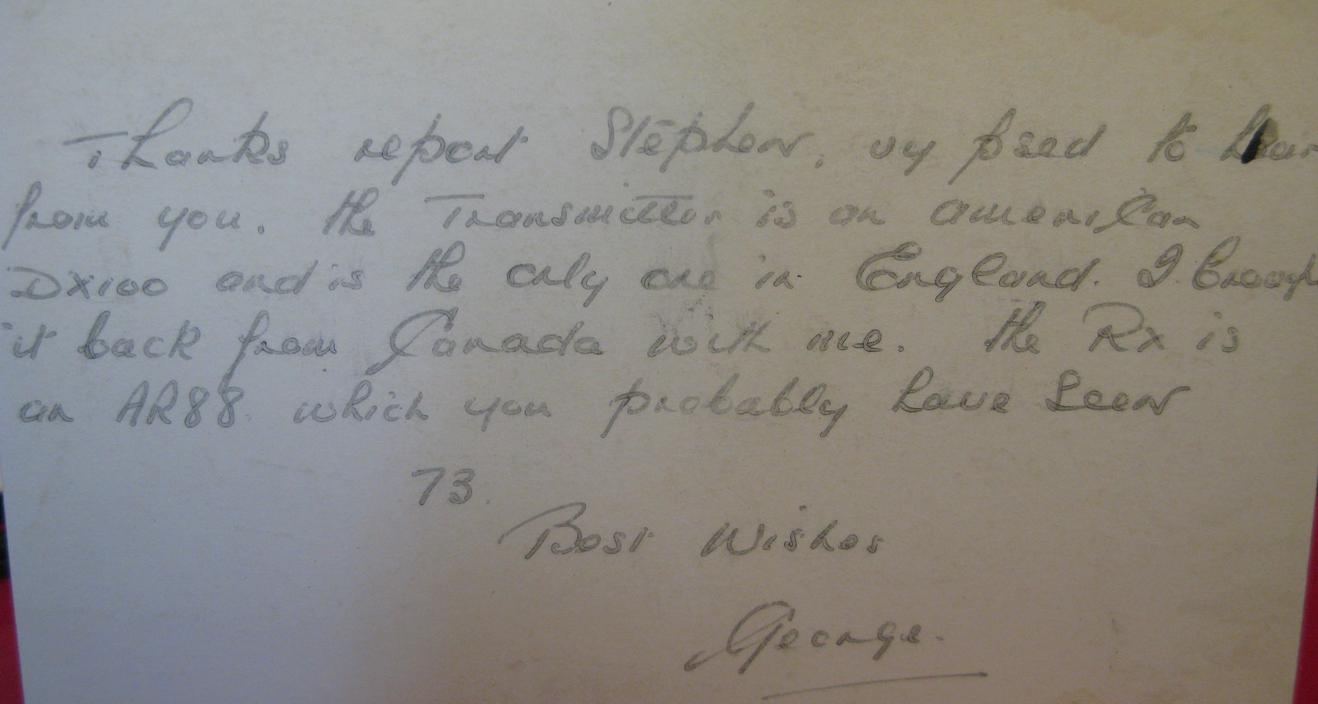 Thanks report Stephen, vy psed to hear
from you. The Transmitter is an american
DX100 and is the only one in England. I brough
it back from Canada with me. The Rx is
an AR88 which you probably have seen
73.
Best Wishes
George.